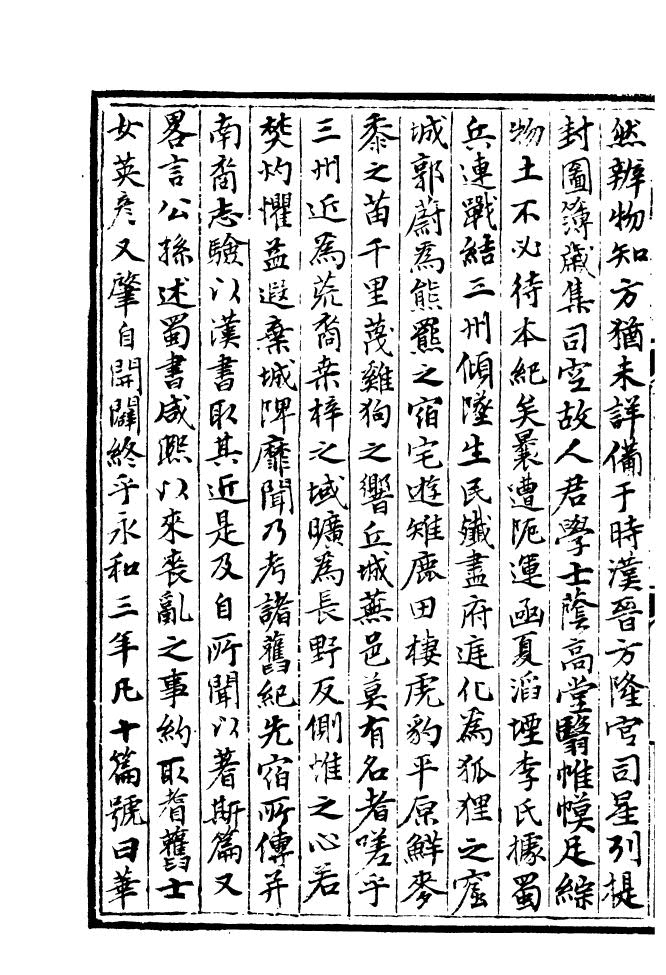 然辨物知方猶未詳備于時漢晉方隆官司星列提
封圖簿歲集司空故人君學士蔭高堂翳帷幙足綜
物土不必待本紀矣曩遭阨運函夏滔堙李氏據蜀
兵連戰結三州傾墜生民殲盡府庭化為狐狸之窟
城郭蔚為熊羆之宿宅遊雉鹿田棲虎豹平原鮮麥
黍之苗千里蔑雞狗之響丘城蕪邑莫有名者嗟乎
三州近為荒裔桒梓之域曠為長野反側惟之心若
焚灼懼益遐棄城陴靡聞乃考諸舊紀先宿所傳并
南裔志驗以漢書取其近是及自所聞以著斯篇又
畧言公孫述蜀書咸熙以來喪亂之事約取耆舊士
女英彥又肇自開闢終乎永和三年凡十篇號曰華